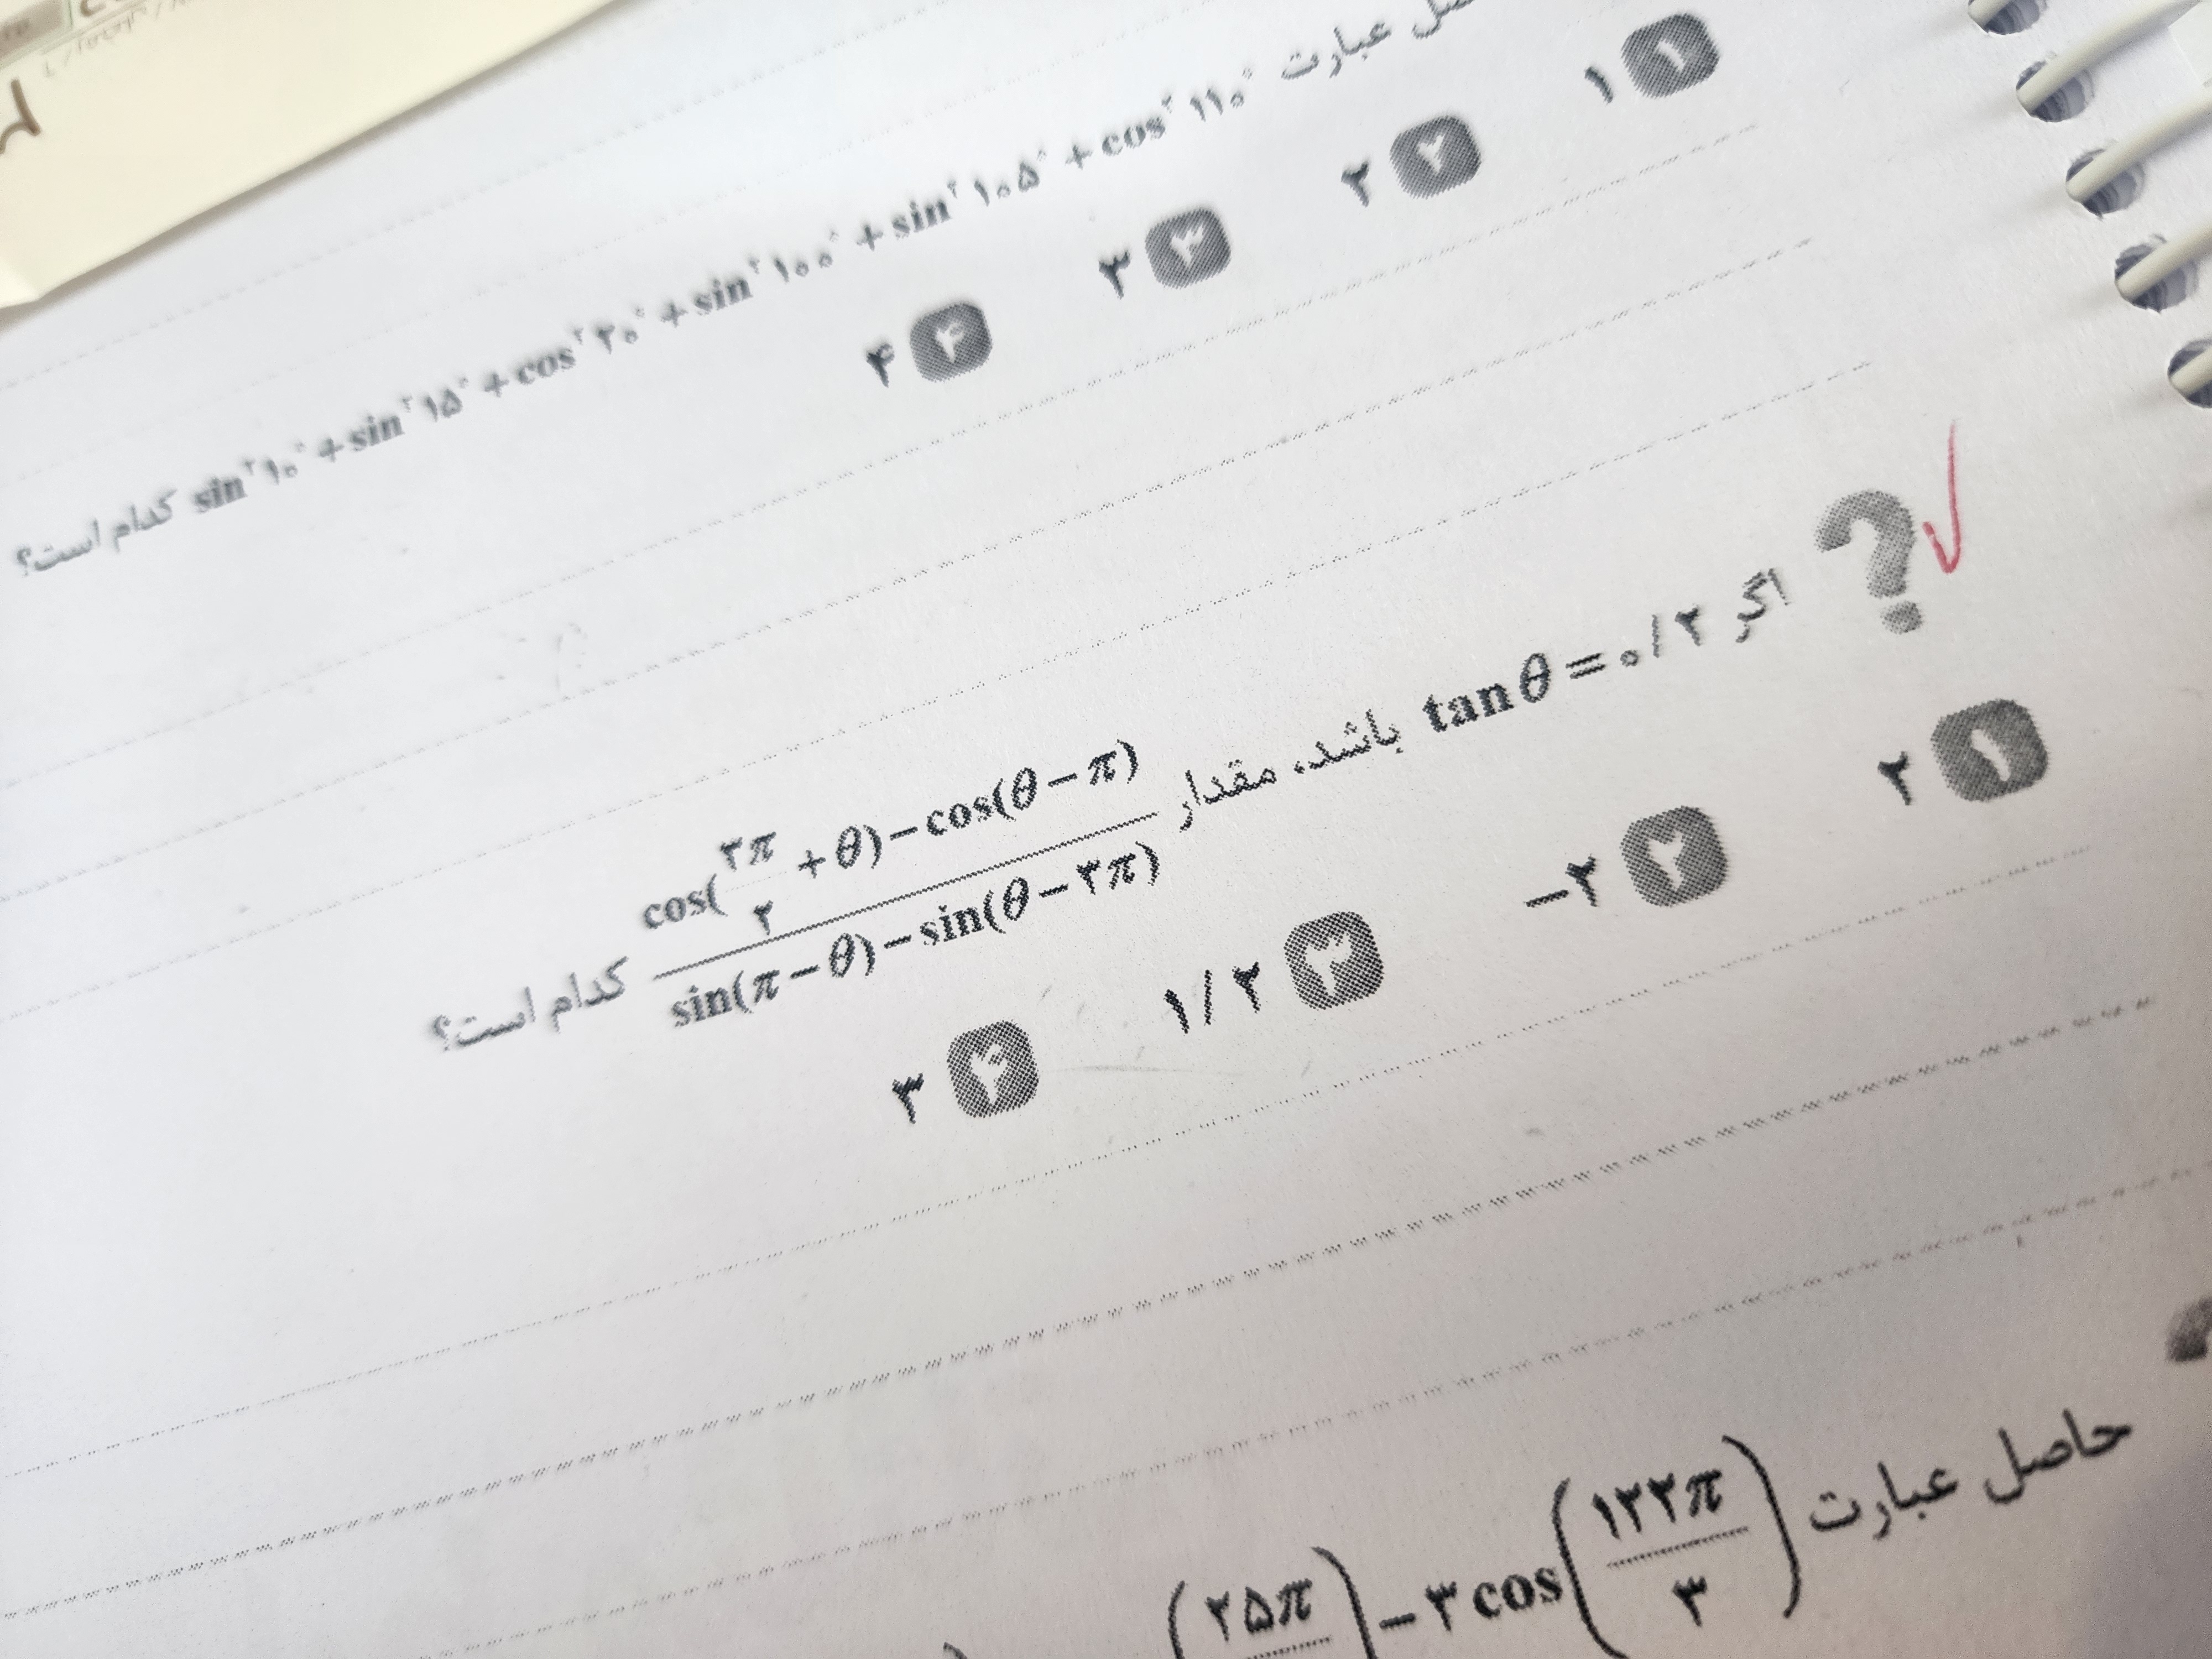 عبارت sin²۱۰° + sin²۱۵° + cos²۲۰° + sin²۱۰۰° + sin²۱۰۵° + cos²۱۱۰° کدام است؟
۱ ۱ ۲ ۲ ۳ ۳ ۴ ۴
? اگر tanθ = ۰/۲ باشد، مقدار (cos(۳π/۲ + θ) − cos(θ − π)) / (sin(π − θ) − sin(θ − ۳π)) کدام است؟
۱ ۲ ۲ −۲ ۳ ۱/۲ ۴ ۳
حاصل عبارت cos(۱۲۲π/۳) − ۳ (۲۵π